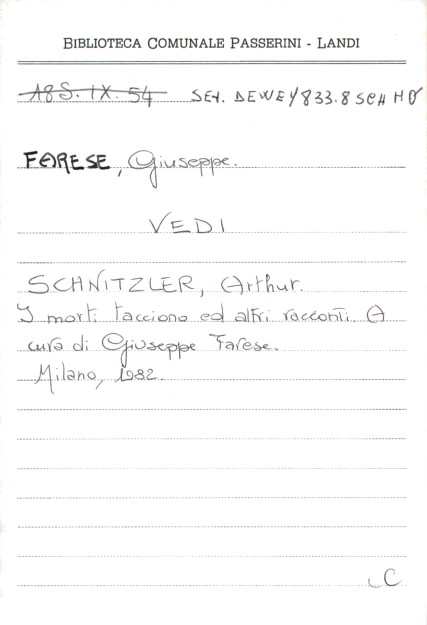 BIBLIOTECA COMUNALE PASSERINI - LANDI
A8S. IX. 54 SEZ. DEWEY 833.8 SCH MO
FARESE, Giuseppe.
VEDI
SCHNITZLER, Arthur.
I morti tacciono ed altri racconti. A
cura di Giuseppe Farese.
Milano, 1982.
C